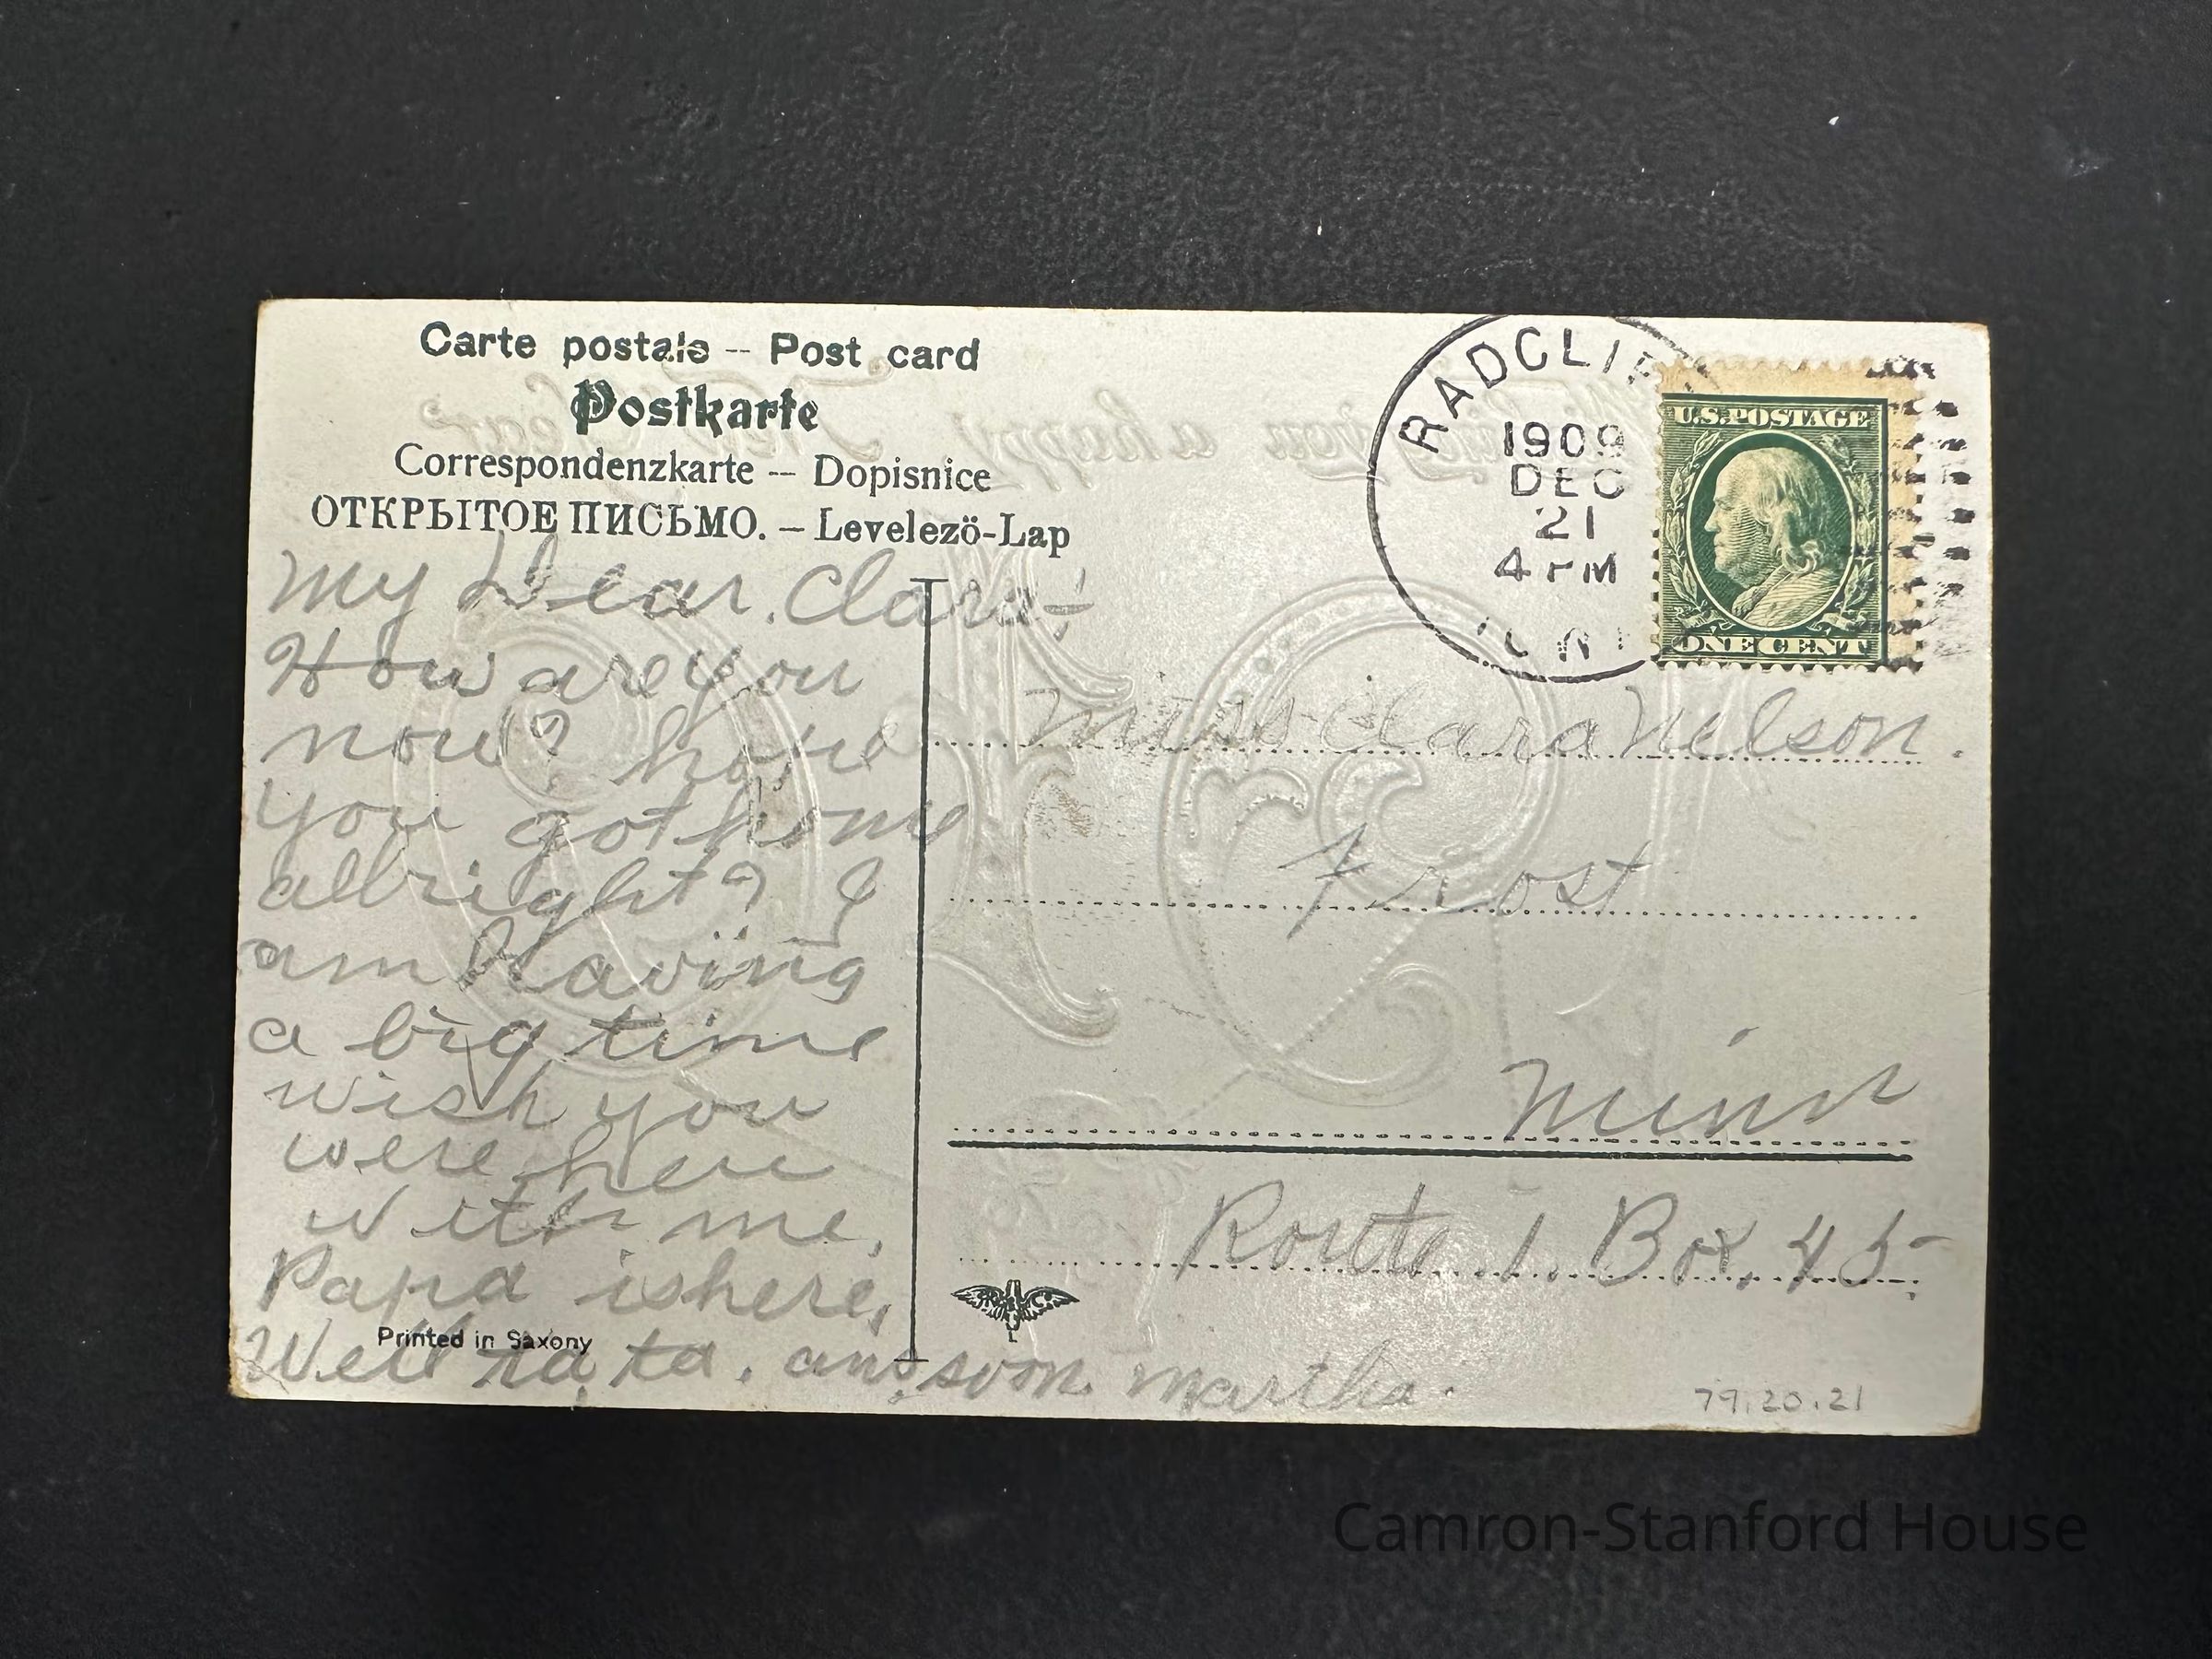 Carte postale -- Post card
Postkarte
Correspondenzkarte -- Dopisnice
ОТКРЫТОЕ ПИСЬМО. – Levelezö-Lap
My Dear Clara-
How are you
now? have
you got home
allright? I
am having
a big time
wish you
were here
with me,
Papa is here,
Printed in Saxony
Well ta, ta. ans, soon. Martha.
RADCLIF
1909
DEC
21
4 PM
U.S. POSTAGE
ONE CENT
Miss Clara Nelson.
Frost
Minn
Route 1. Box. 45.
79.20.21
Camron-Stanford House